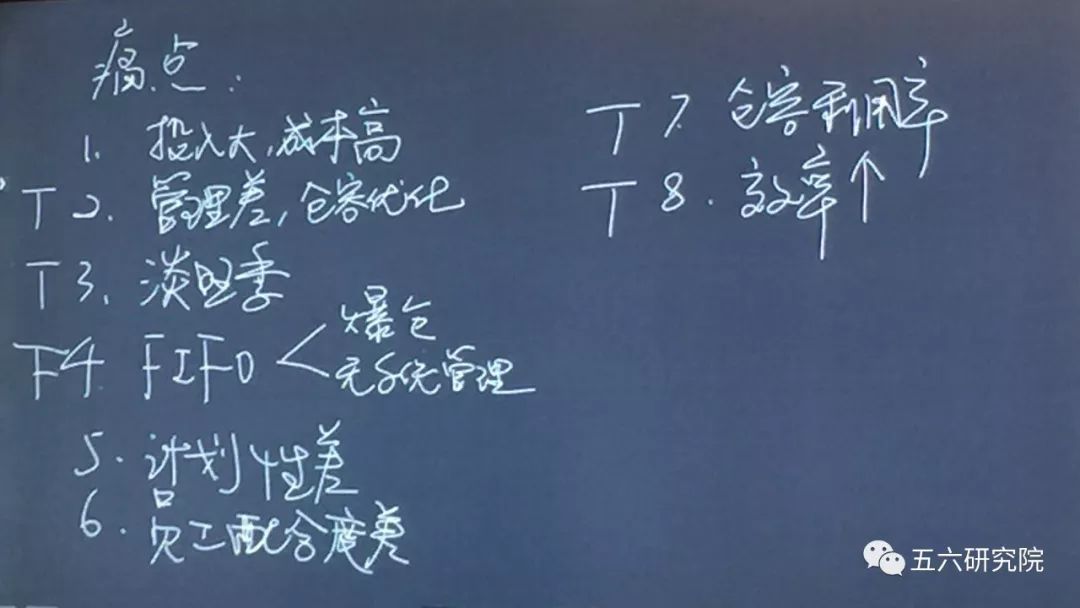 痛点:
1. 投入大,成本高
T 2. 管理差,仓容优化
T 3. 淡旺季
T 4. FIFO < 爆仓
无系统管理
5. 计划性差
6. 员工配合度差
T 7. 仓容利用率
T 8. 效率↑
五六研究院